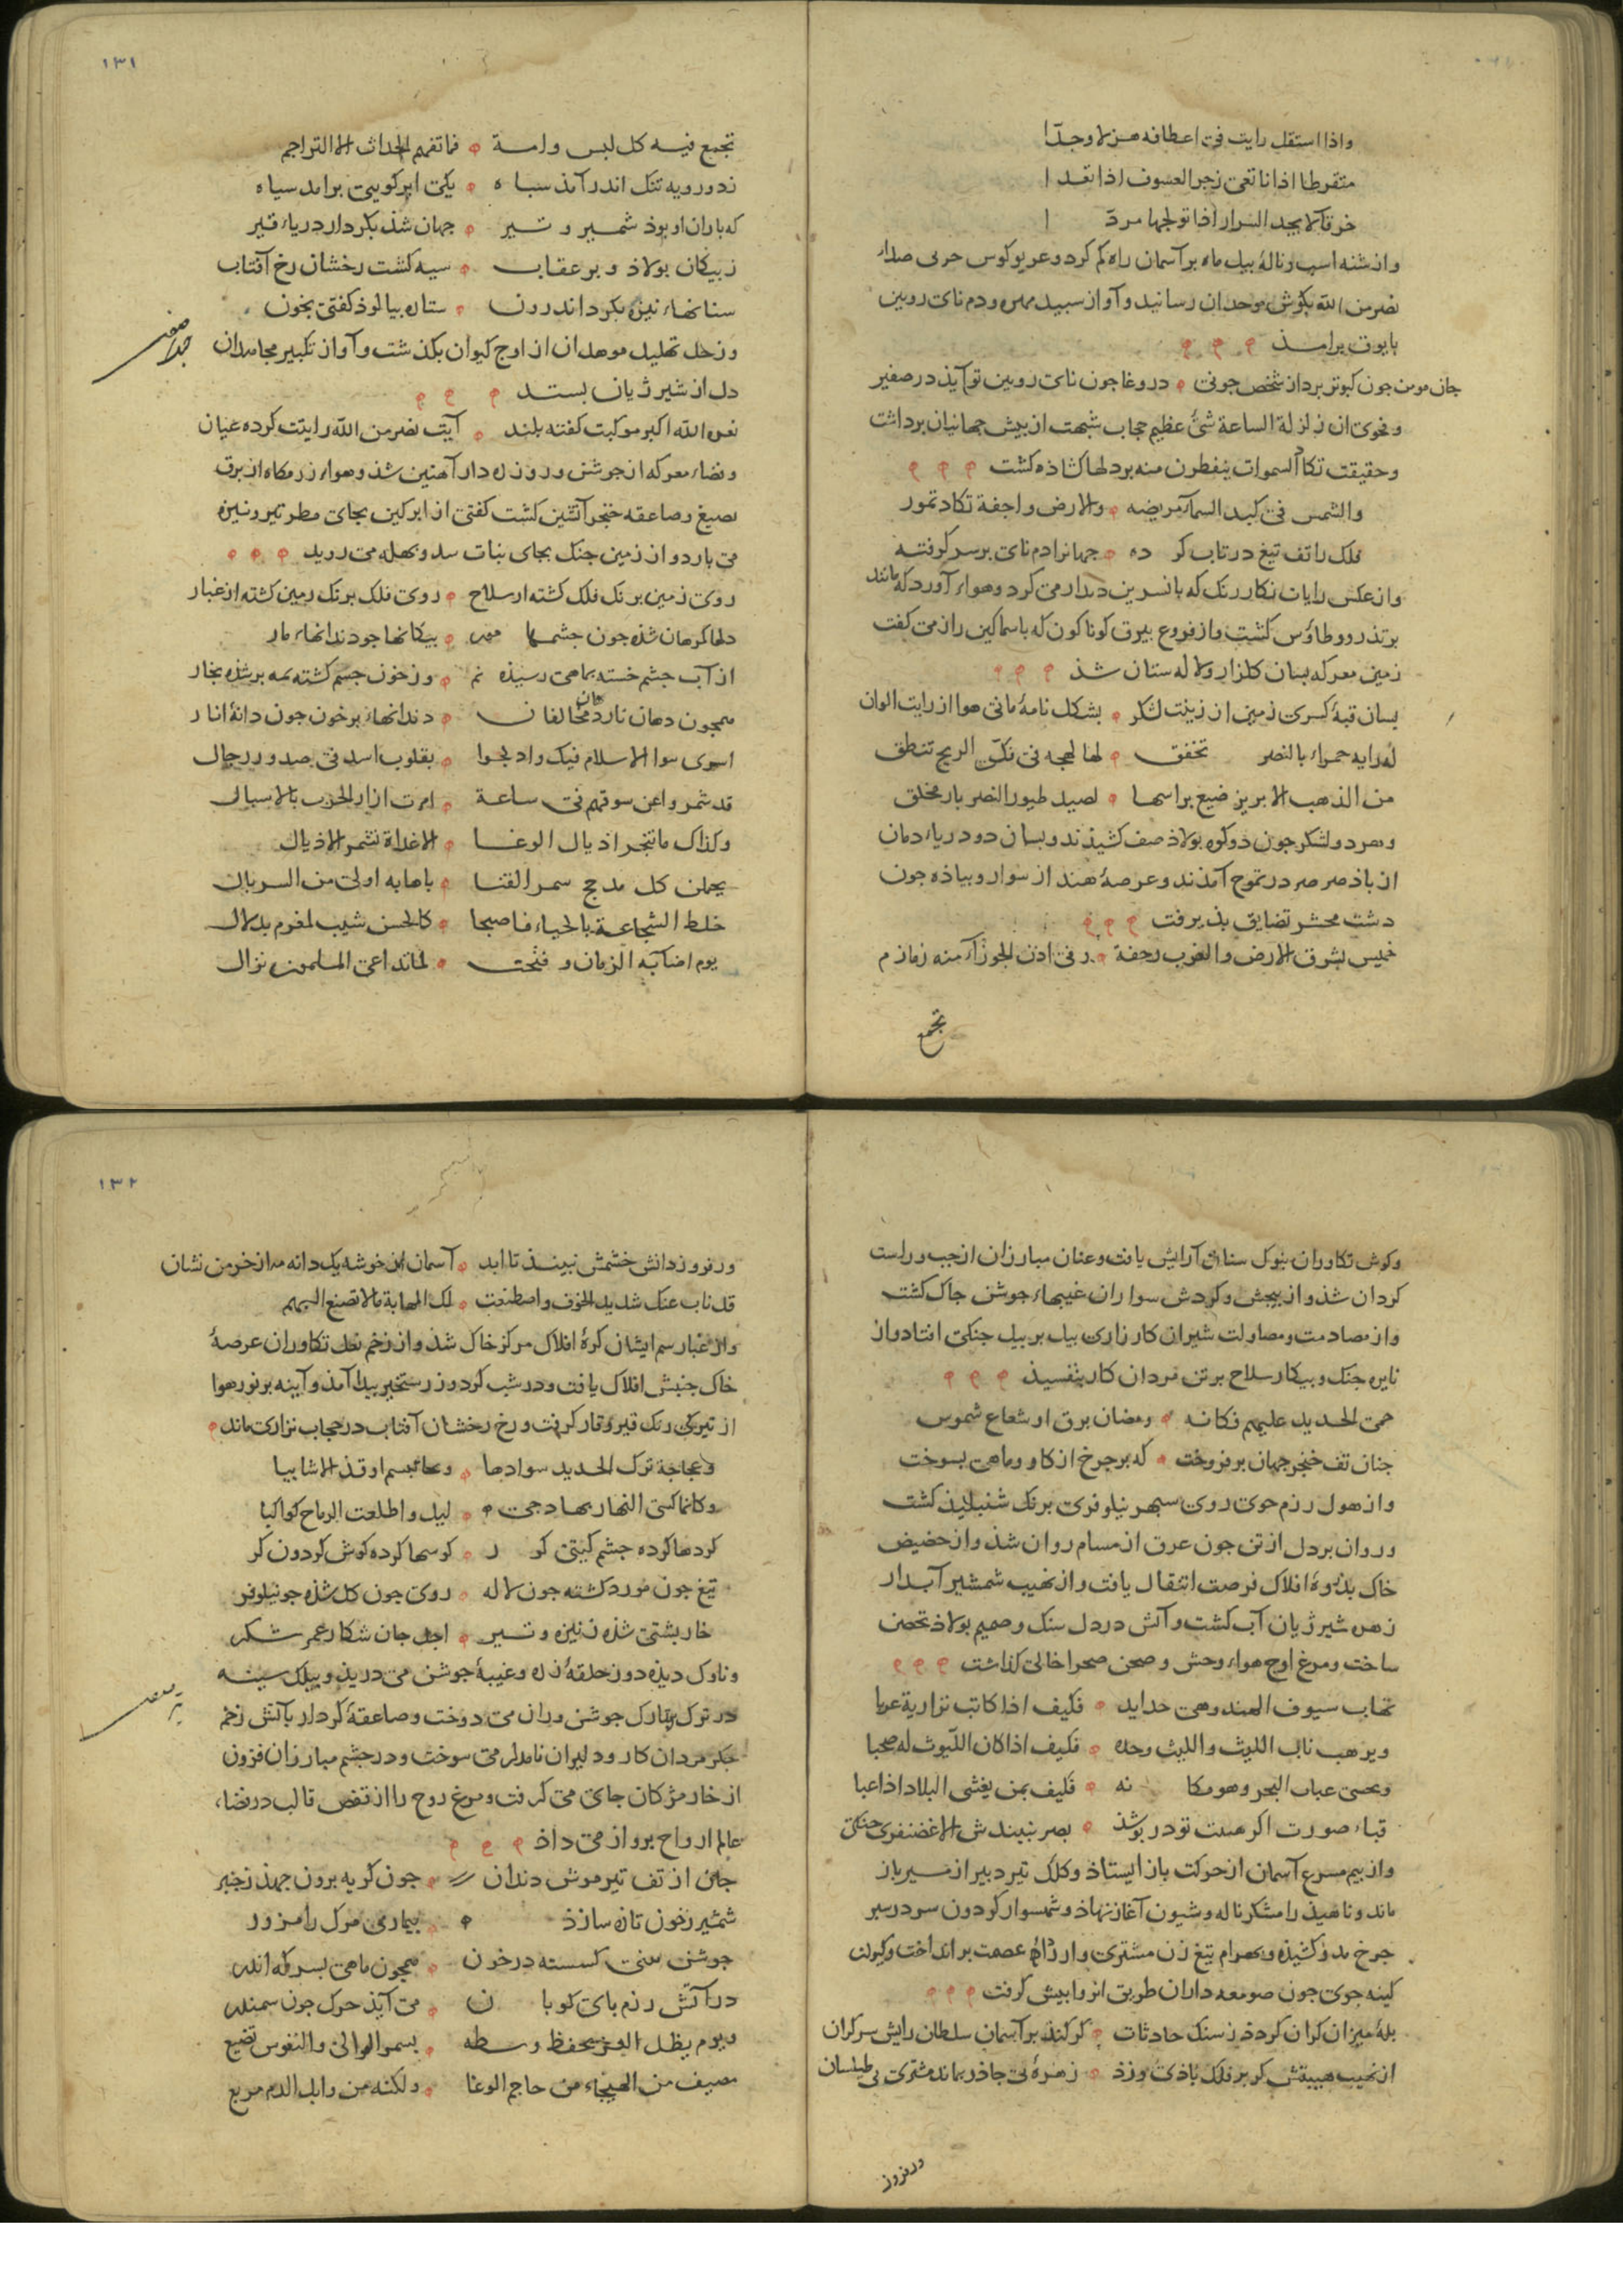 واذا استقل رایت فی اعطافه هزلا وجدا
متقرطا اذانا تعی زجر اذا تقدا
خرقا لا یجد السرار اذا تولجها مردا
واز شنه اسب و نالهٔ بیل ماه بر آسمان راه کم کرد و غریو کوس حربی صداء
نصر من الله بکوش موحدان رسانید و آواز سبید مهره و دم نای رویین
بایوق برامذ
جان مومن جون کبوتر برد از شخص جونی در وغا جون نای رویین تو آیذ در صفیر
و فحوی ان زلزلة الساعة شیٔ عظیم حجاب شبهت از بیش جهانیان برداشت
و حقیقت تکاد السموات یتفطرن منه بر دلها کشاذه کشت
والشمس فی کبد السماء مریضه والارض واجفة تکاد تمور
فلک را تف تیغ در تاب کرده جهانرا دم نای بر سر کرفته
واز عکس رایات نکار رنک که با نسرین دیدار می کرد و هواء آورد که مانند
بر تذرو و طاؤس کشت واز فروع بیرق کوناکون که با سماکین راز می کفت
زمین معرکه بسان کلزار و لاله ستان شذ
بسان قبهٔ کسری زمین از زینت لشکر بشکل نامهٔ مانی هوا از رایت الوان
له رایه حمراء بالنصر تخفق لها لهجه فی کل الریح تنطق
من الذهب الابریز ضیع براسها لصید طیور النصر باز محلق
و هر دو لشکر جون دو کوه بولاذ صف کشیذند و بسان دو دریاء دمان
از باذ صرصر در تموج آمذند و عرصهٔ هند از سوار و بیاذه جون
دشت محشر تضایق بذیرفت
خمیس بشرق الارض والغرب رجفة و فی اذن الجوزاء منه زمازم
تجمع
١٣١
تجمع فیه کل لسن وامة فما تفهم الحداث الا التراجم
ز دو رویه تنک اندر آمذ سباه یکی ابر کویی برامد سیاه
که باران او بوذ شمشیر و تیر جهان شذ بکردار دریاء قیر
ز بیکان بولاذ و بر عقاب سیه کشت رخشان رخ آفتاب
سنانهاء نیزه بکرد اندرون ستاره بیالوذ کفتی بخون
و زجل تهلیل موحدان از اوج کیوان بکذشت و آواز تکبیر مجاهدان
دل از شیر ژیان بستد
نعره الله اکبر موکبت کفته بلند آیت نصر من الله رایتت کرده عیان
و فضاء معرکه از جوشن و زره دار آهنین شذ و هواء رزمکاه از برق
تیغ و صاعقه خنجر آتشین کشت کفتی از ابر کین بجای مطر تیر و نیزه
می بارد و از زمین جنک بجای نبات می روید
روی زمین برنک فلک کشته از سلاح روی فلک برنک زمین کشته از غبار
دلها کرهان شذه جون جشمها بیکانها جو دندانهاء مار
از آب جشم خسته بماهی رسیذه نم و ز خون جسم کشته بمه بر شذه بخار
همجون دهان نار دهان مخالفان دندانهاء بر خون جون دانهٔ انار
اسری سوا الاسلام فیک وادلجوا بقلوب اسد فی صدور رجال
قد شمروا عن سوقهم فی ساعة امرت ازار الحرب بالاسبال
وکذاک ما تنجر اذیال الوغا الا غداة تشمر الاذیال
یحملن کل مدجج سمر القنا باهابه اولی من السربال
خلط الشجاعة بالحیاء فاصبحا کالحسن شیب لمغرم بدلال
یوم اضاء به الزمان وفتحت
وکوش تکاوران بنوک سنان آرایش یافت و عنان مبارزان از جب و راست
کردان شذ و از بیجش و کردش سواران غیبهاء جوشن جاک کشت
واز مصادمت و مصاولت شیران کارزاری بیل بر بیل جنکی افتاد و از
نایره جنک و بیکار سلاح بر تن مردان کار بتفسیذ
حمی الحدید علیهم فکانه ومضان برق او شعاع شموس
جنان تف خنجر جهان بر فروخت که بر جرخ از کاو و ماهی بسوخت
واز هول رزم جوی روی سبهر نیلوفری برنک شنبلیذ کشت
و روان بر دل از تن جون عرق از مسام روان شذ و از حضیض
خاک بذروهٔ افلاک فرصت انتقال یافت و از نهیب شمشیر آبدار
زهره شیر ژیان آب کشت و آتش در دل سنک و صمیم بولاذ تحصن
ساخت و مرغ اوج هواء وحش و صحن صحرا خالی کذاشت
تهاب سیوف الهند وهی حداید فکیف اذا کانت نزاریة عربا
ویرهب ناب اللیث واللیث وحده فکیف اذا کان اللیوث له صحبا
ویخشی عباب البحر وهو مکانه فکیف بمن یغشی البلاد اذا عبا
قباء صورت اکر هست تو در بوشذ بصر نبیندش الا غضنفری جنکی
واز بیم مسرع آسمان از حرکت باز ایستاذ و کلک تیر دبیر از مسیر باز
ماند و ناهیذ رامشکر ناله و شیون آغاز نهاذ و شهسوار کردون سر در سبر
جرخ کشیذه و بهرام تیغ زن مشتری وار ذراع عصمت بر انداخت و کیوان
کینه جوی جون صومعه داران طریق انزوا بیش کرفت
بلهٔ میزان کران کردذ ز سنک حادثات کر کنذ بر آسمان سلطان رایش سر کران
از نهیب هیبتش کر بر فلک باذی وزذ زهرهٔ بی جاذر بماند مشتری بی طیلسان
ور فروز
١٣٢
ور فروزد آتش خشمش نبینذ تا ابد آسمان از خوشه یک دانه مه از خرمن نشان
قد ناب عنک شدید الخوف واصطنعت لک المهابة مالا تصنع البهم
واز غبار سم ایشان کرهٔ افلاک مرکز خاک شذ و از زخم نعل تکاوران عرصهٔ
خاک جنبش افلاک یافت و در شب کرد روز رستخیز بیدا آمذ و آینه بر نور هوا
از تیرکی رنک قیر و قار کرفت و رخ رخشان آفتاب در حجاب تواری ماند
وعجاجة ترک الحدید سوادها
وکانما کسی النهار بها دجی لیل واطلعت الرماح کواکبا
کردها کرده جشم کیتی کور کوسها کرده کوش کردون کر
تیغ جون مورد کشته جون لاله روی جون کل شذه جو نیلوفر
خار بشتی شذه ز نیزه و تیر اجل جان شکار عمر شکر
و ناوک دیذه دوز حلقهٔ زره و غیبهٔ جوشن می دریذ و بیلک سینه
در ترک تارک جوشن وران می دوخت و صاعقهٔ کردار بآتش زخم
جکر مردان کار و دلیران نامدار می سوخت و در جشم مبارزان فزون
از خار مژکان جای می کرفت و مرغ روح را از قفص قالب در فضاء
عالم ارواح برواز می داذ
جان از تف تیر موش دندان جون کربه برون جهذ زنجیر
شمشیر ز خون تازه سازذ بیماری مرک را مزور
جوشن کسسته در خون همجون ماهی بسر که اندر
در آتش رزم بای کوبان می آیذ جون سمندر